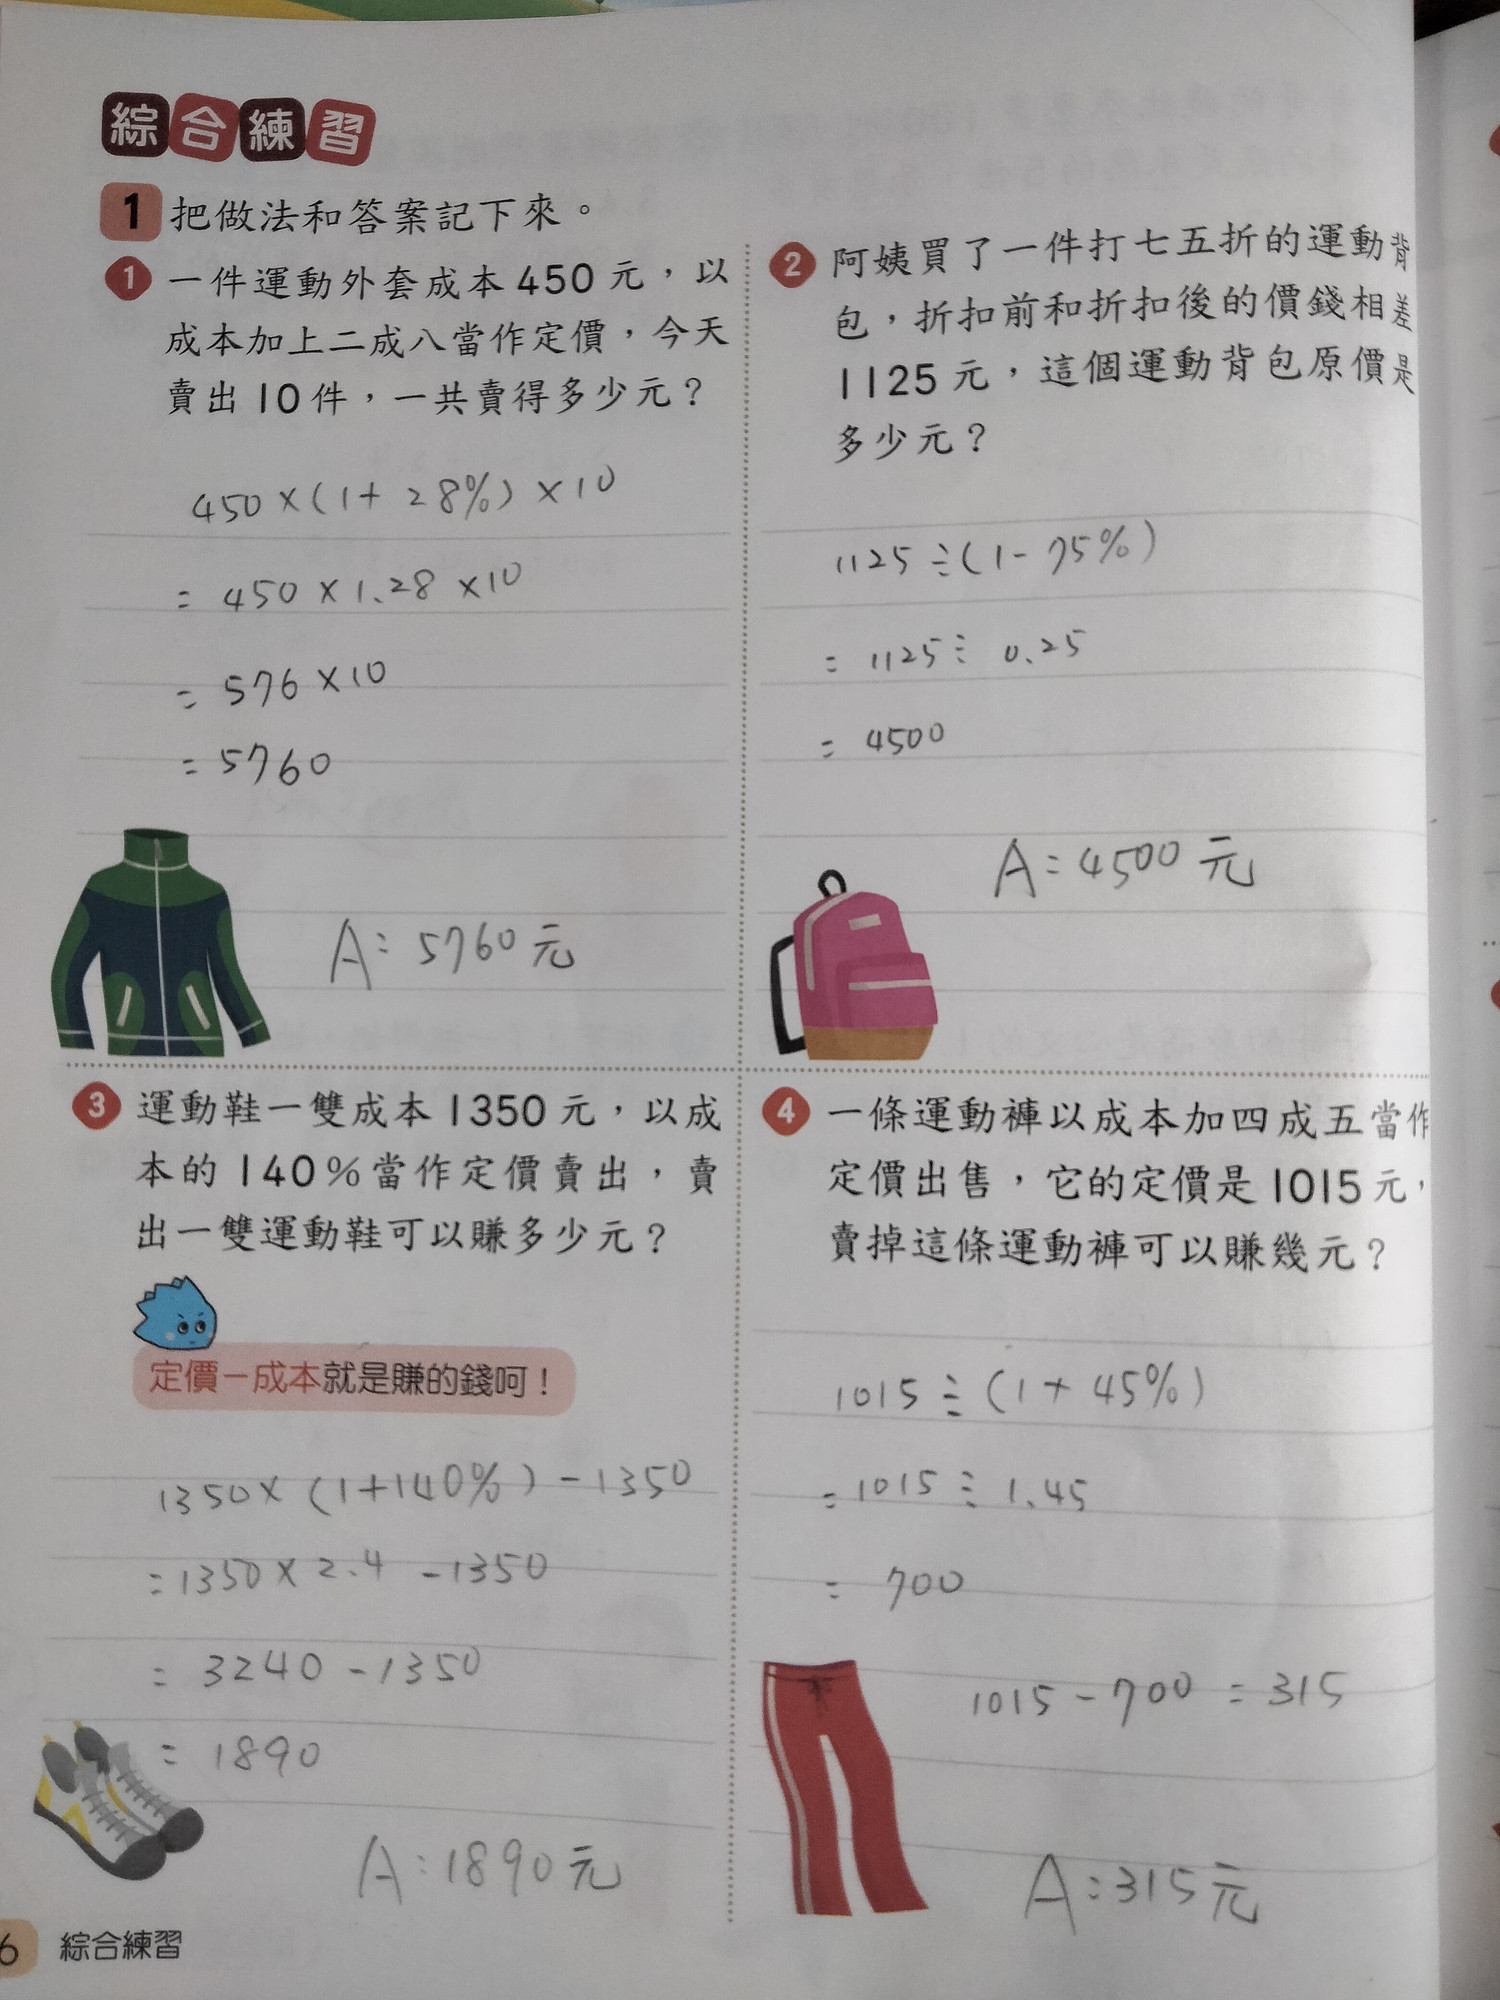 綜合練習
1 把做法和答案記下來。
1 一件運動外套成本450元，以
成本加上二成八當作定價，今天
賣出10件，一共賣得多少元？
450×(1+28%)×10
=450×1.28×10
=576×10
=5760
A:5760元
2 阿姨買了一件打七五折的運動背
包，折扣前和折扣後的價錢相差
1125元，這個運動背包原價是
多少元？
1125÷(1-75%)
=1125÷0.25
=4500
A:4500元
3 運動鞋一雙成本1350元，以成
本的140%當作定價賣出，賣
出一雙運動鞋可以賺多少元？
定價－成本就是賺的錢呵！
1350×(1+140%)-1350
=1350×2.4-1350
=3240-1350
=1890
A:1890元
4 一條運動褲以成本加四成五當作
定價出售，它的定價是1015元，
賣掉這條運動褲可以賺幾元？
1015÷(1+45%)
=1015÷1.45
=700
1015-700=315
A:315元
6 綜合練習